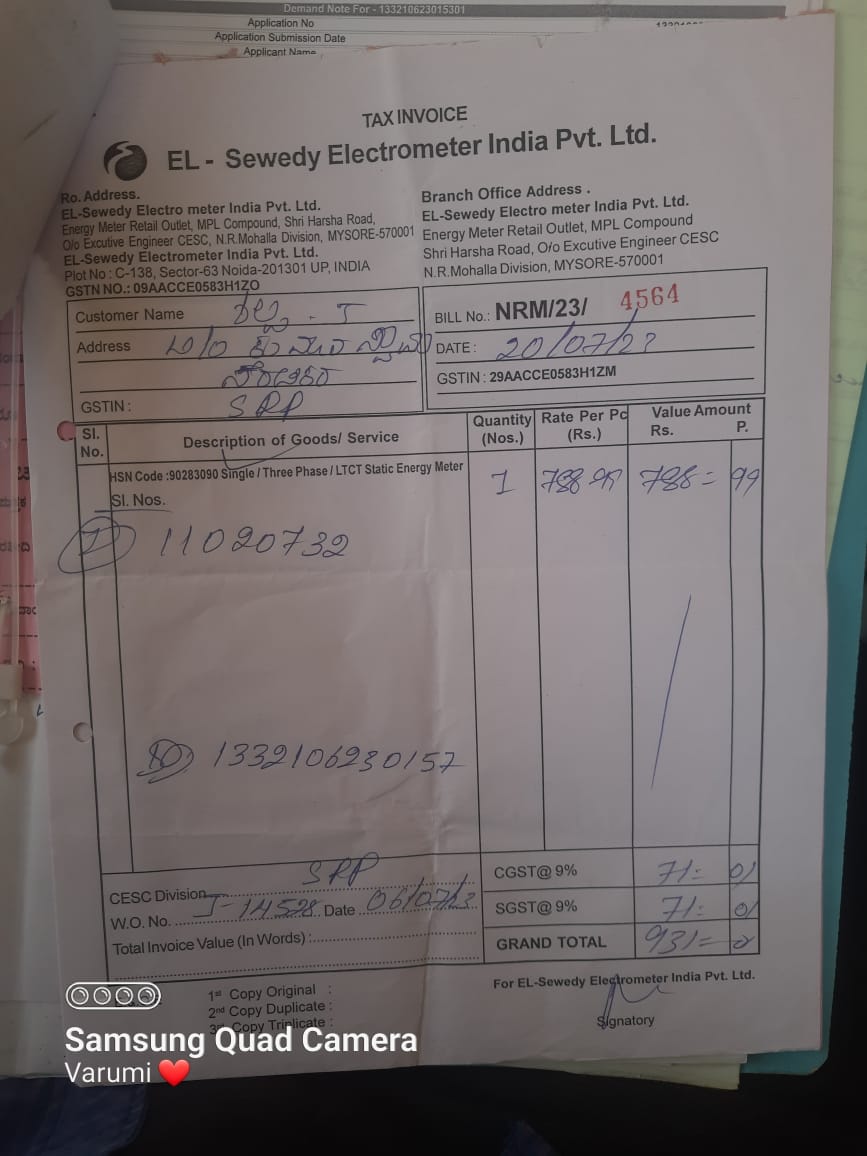 Demand Note For - 133210623015301
Application No
Application Submission Date
Applicant Name
TAX INVOICE
EL - Sewedy Electrometer India Pvt. Ltd.
Ro. Address.
EL-Sewedy Electro meter India Pvt. Ltd.
Energy Meter Retail Outlet, MPL Compound, Shri Harsha Road,
O/o Excutive Engineer CESC, N.R.Mohalla Division, MYSORE-570001
EL-Sewedy Electrometer India Pvt. Ltd.
Plot No : C-138, Sector-63 Noida-201301 UP, INDIA
GSTN NO.: 09AACCE0583H1ZO
Branch Office Address .
EL-Sewedy Electro meter India Pvt. Ltd.
Energy Meter Retail Outlet, MPL Compound
Shri Harsha Road, O/o Excutive Engineer CESC
N.R.Mohalla Division, MYSORE-570001
Customer Name
Address
GSTIN : SRP
BILL No.: NRM/23/ 4564
DATE : 20/07/23
GSTIN : 29AACCE0583H1ZM
Sl. No. Description of Goods/ Service Quantity (Nos.) Rate Per Pc (Rs.) Value Amount Rs. P.
HSN Code :90283090 Single / Three Phase / LTCT Static Energy Meter 1 788 788= 99
Sl. Nos.
1 11020732
1332106230157
CESC Division SRP
W.O. No. J-14528 Date 06/07/23
Total Invoice Value (In Words) :
CGST@ 9% 71= 01
SGST@ 9% 71= 01
GRAND TOTAL 931=
For EL-Sewedy Electrometer India Pvt. Ltd.
Signatory
1st Copy Original :
2nd Copy Duplicate :
3rd Copy Triplicate :
Samsung Quad Camera
Varumi ❤️